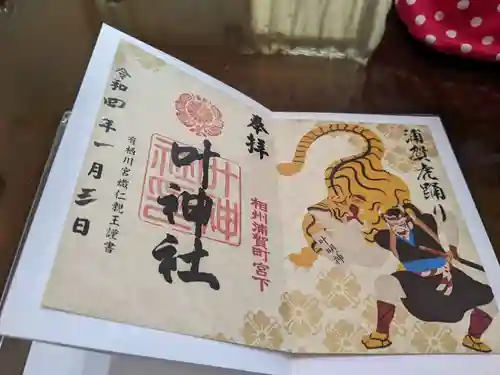 浦賀虎踊り
奉拝
相州浦賀町宮下
叶神社
叶神
令和四年一月三日
有栖川宮熾仁親王謹書